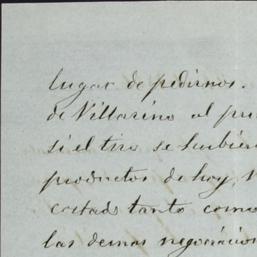 lugar de pedirnos.
de Villarino al pu
si el tiro se hubier
productos de hoy,
costado tanto como
las demas negociacion